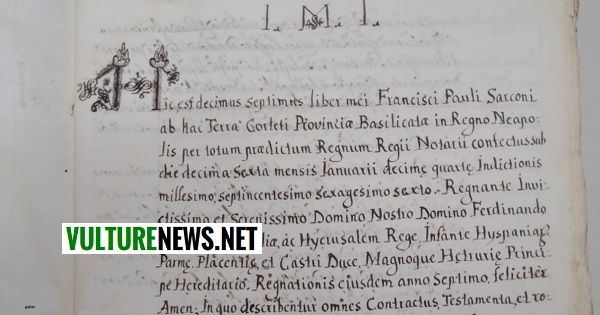 I. M. I.
Hic est decimus septimus liber mei Francisci Pauli Sarconi
ab hac Terra Gorleti Provinciæ Basilicatæ in Regno Neapo:
lis per totum prædictum Regnum Regii Notarii confectus sub
die decima sexta mensis Ianuarii decimę quartę Indictionis
millesimo, septincentesimo sexagesimo sexto. Regnante Invi-
ctissimo, et Serenissimo Domino Nostro Domino Ferdinando
VULTURENEWS.NET
ac Hyerusalem Rege, Infante Hyspaniaȩ
Parmę, Placentię, et Castri Duce, Magnoque Hętrurię Princi-
pe Hereditario, Regnationis ejusdem anno Septimo, feliciter
Amen: In quo describentur omnes Contractus, Testamenta, et ro-